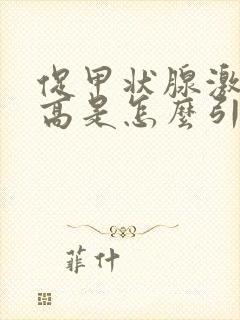 促甲状腺激
高是怎麼引
菲什